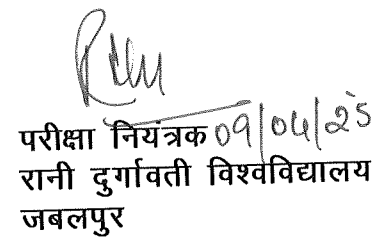 परीक्षा नियंत्रक 09/04/25
रानी दुर्गावती विश्वविद्यालय
जबलपुर